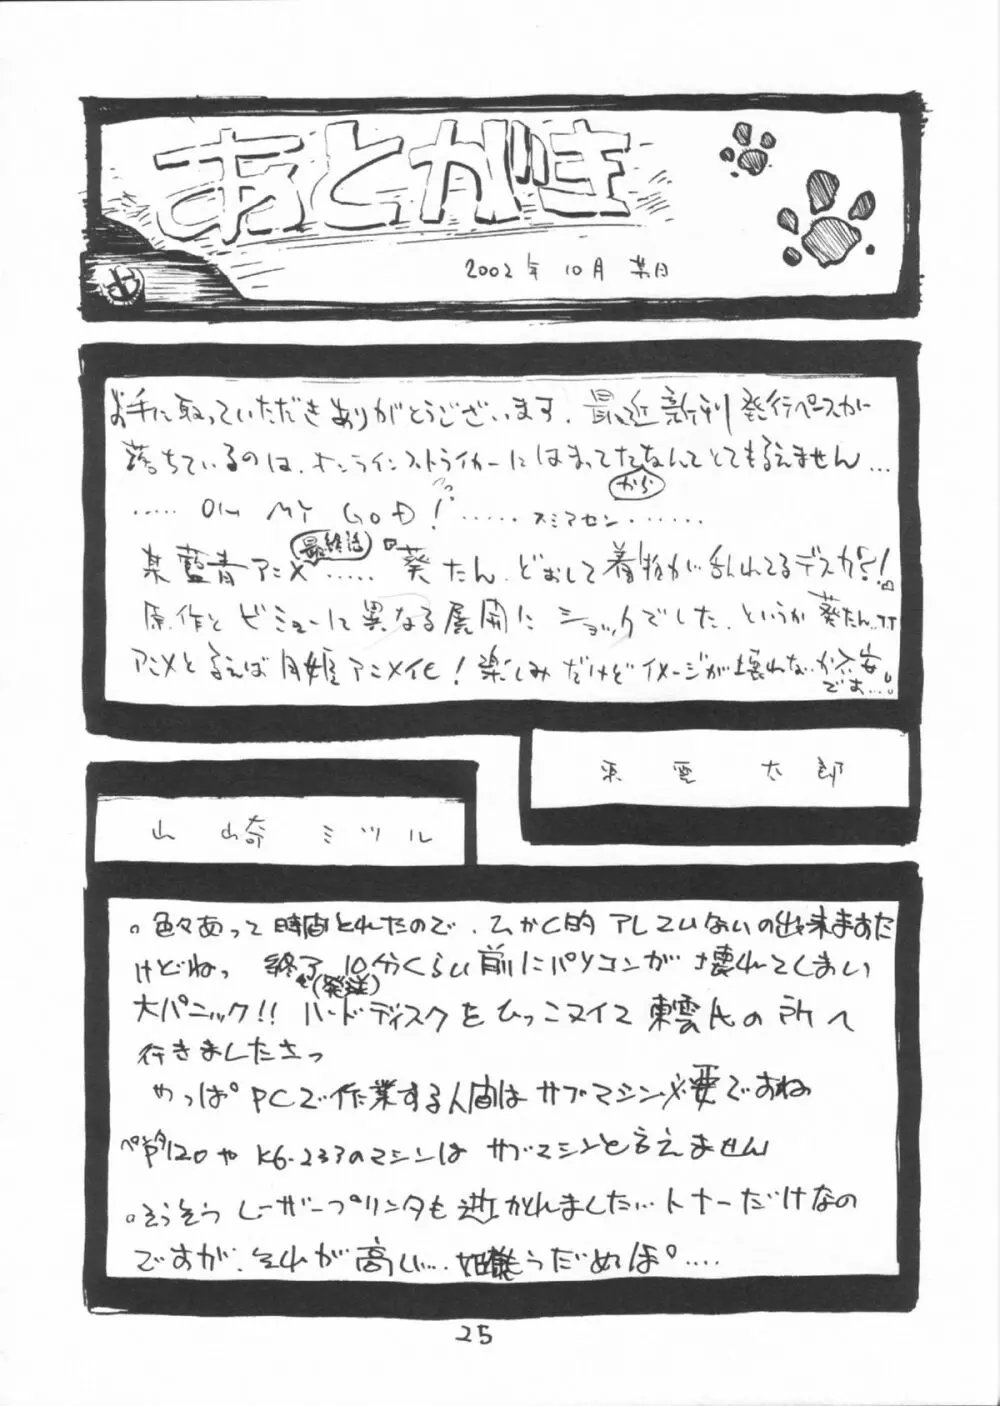 あとがき
2002年10月某日
お手に取っていただきありがとうございます。最近新刊発行ペースが
落ちているのは、オンラインストライカーにはまってたからなんてとても言えません…
……OH MY GOD!……スミマセン……
某藍青アニメ最終話……葵たん、どおして着物が乱れてるデスカ?!
原作とビミョーに異なる展開にショックでした。というか葵たん…
アニメと言えば月姫アニメ化!楽しみだけどイメージが壊れないか不安
です…
東雲太郎
山崎ミツル
。色々あって時間とれたので、
けどねっ 終了(発送)10分くらい前にパソコンが壊れてしまい
大パニック!!ハードディスクをひっこヌイて東雲氏の所へ
行きましたさっ
やっぱPCで作業する人間はサブマシン必要ですね
K6-233のマシンはサブマシンと言えません
。そうそうレーザープリンタも逝かれました…トナーだけなの
ですが、それが高い…
25